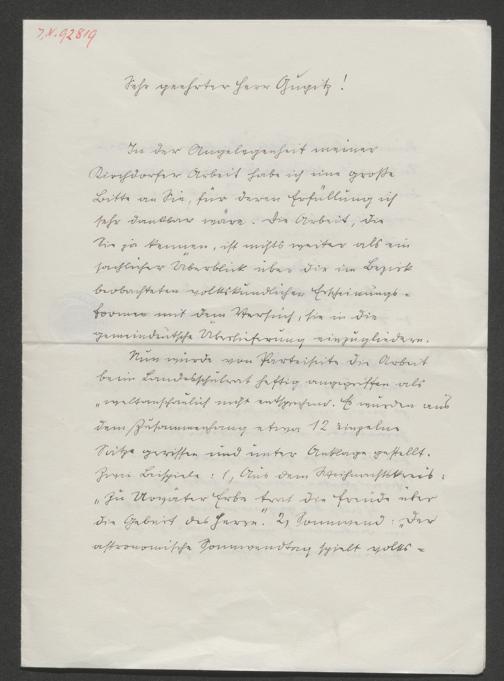 J.N. 92819
Sehr geehrter Herr Gugitz!
In der Angelegenheit meiner
Kirchdorfer Arbeit habe ich eine große
Bitte an Sie, für deren Erfüllung ich
sehr dankbar wäre. Die Arbeit, die
Sie ja kennen, ist nichts weiter als ein
sachlicher Überblick über die im Bezirk
beobachteten volkskundlichen Erscheinungs-
formen mit dem Versuch, sie in die
gemeindeutsche Überlieferung einzugliedern.
Nun wurde von Parteiseite die Arbeit
beim Landesschulrat heftig angegriffen als
„weltanschaulich nicht entsprechend. Es wurden aus
dem Zusammenhang etwa 12 einzelne
Sätze gerissen und unter Anklage gestellt.
Zwei Beispiele: 1, Aus dem Weihnachtskreis:
„Zu Urväter Erbe trat die Freude über
die Geburt des Herrn." 2, Sonnwend: „Der
astronomische Sonnwendtag spielt volks-